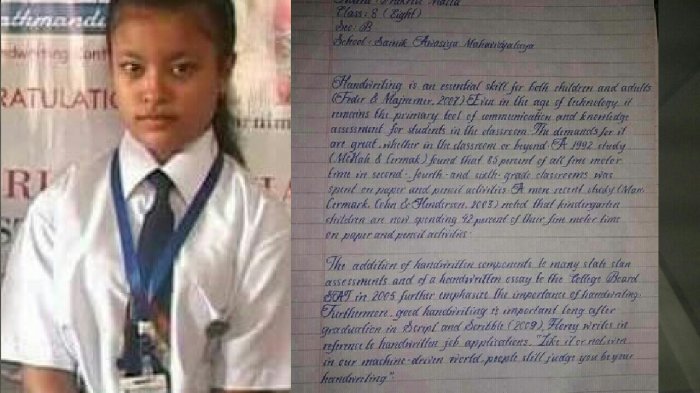 athmand
dwriting Cont
RATULATI
Class: 8 (Eight)
Sec: B
School: Sainik Awasiya Mahavidyalaya
Handwriting is an essential skill for both children and adults
(Feder & Majnemer, 2007) Even in the age of technology, it
remains the primary tool of communication and knowledge
assessment for students in the classroom. The demands for it
are great, whether in the classroom or beyond. A 1992 study
(McHale & Cermak) found that 85 percent of all fine motor
time in second- fourth- and sixth- grade classrooms was
spent on paper and pencil activities. A more recent study (Marr,
Cermak, Cohn & Henderson, 2003) noted that kindergarten
children are now spending 42 percent of their fine motor time
on paper and pencil activities.
The addition of handwritten components to many state stan
assessments and of a handwritten essay to the College Board
SAT in 2005 further emphasis the importance of handwriting.
Furthermore, good handwriting is important long after
graduation in Script and Scribble (2009), Florey writes in
reference to handwritten job applications, "Like it or not, even
in our machine-driven world, people still judge you by your
handwriting".